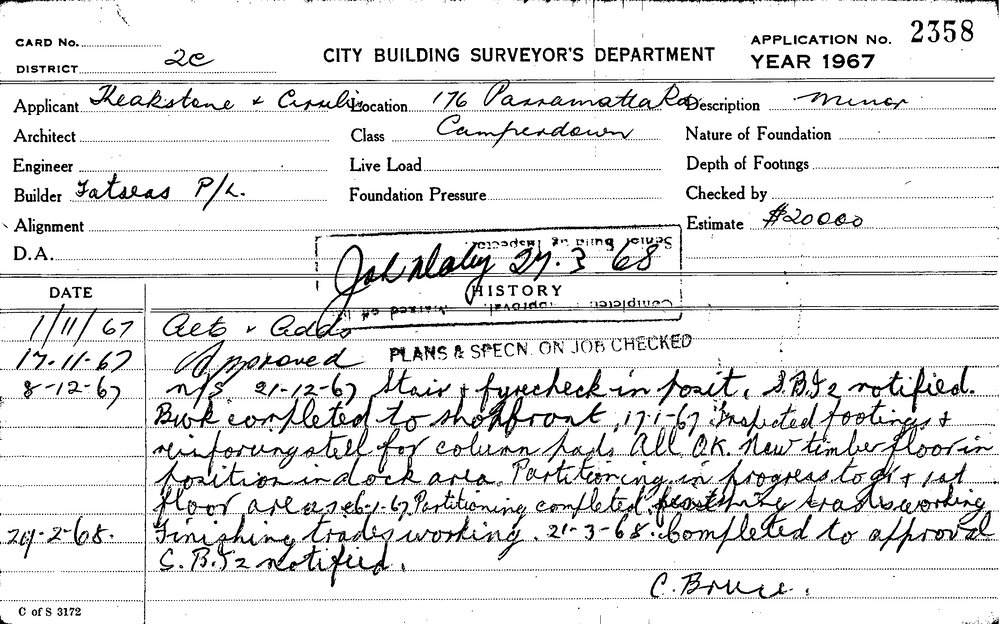 CARD No. CITY BUILDING SURVEYOR'S DEPARTMENT APPLICATION No. 2358
DISTRICT 2C YEAR 1967
Applicant Theakstone & Location 176 Parramatta Rd Description Minor
Architect Class Camperdown Nature of Foundation
Engineer Live Load Depth of Footings
Builder Fatseas P/L. Foundation Pressure Checked by
Alignment Estimate $20000
D.A.
Senior Building Inspector
27.3 68
HISTORY
Completed approval Marked off in
DATE
1/11/67 Alts & Adds
17-11-67 Approved PLANS & SPECN. ON JOB CHECKED
8-12-67 n/s 21-12-67 Stair & fyrecheck in posit. S.B.I2 notified.
Bwk completed to shopfront, 17-1-67 Inspected footings &
reinforcing steel for column pads All OK. New timber floor in
position in dock area. Partitioning in progress to & 1st
floor areas 6-1-67 Partitioning completed, trades working
29-2-68. Finishing trades working. 21-3-68. Completed to approval
S.B.I2 notified.
C. Bruce.
C of S 3172